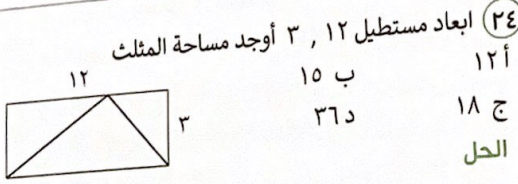 ٢٤ ابعاد مستطيل ١٢ , ٣ أوجد مساحة المثلث
أ ١٢ ب ١٥
ج ١٨ د ٣٦
الحل
١٢
٣